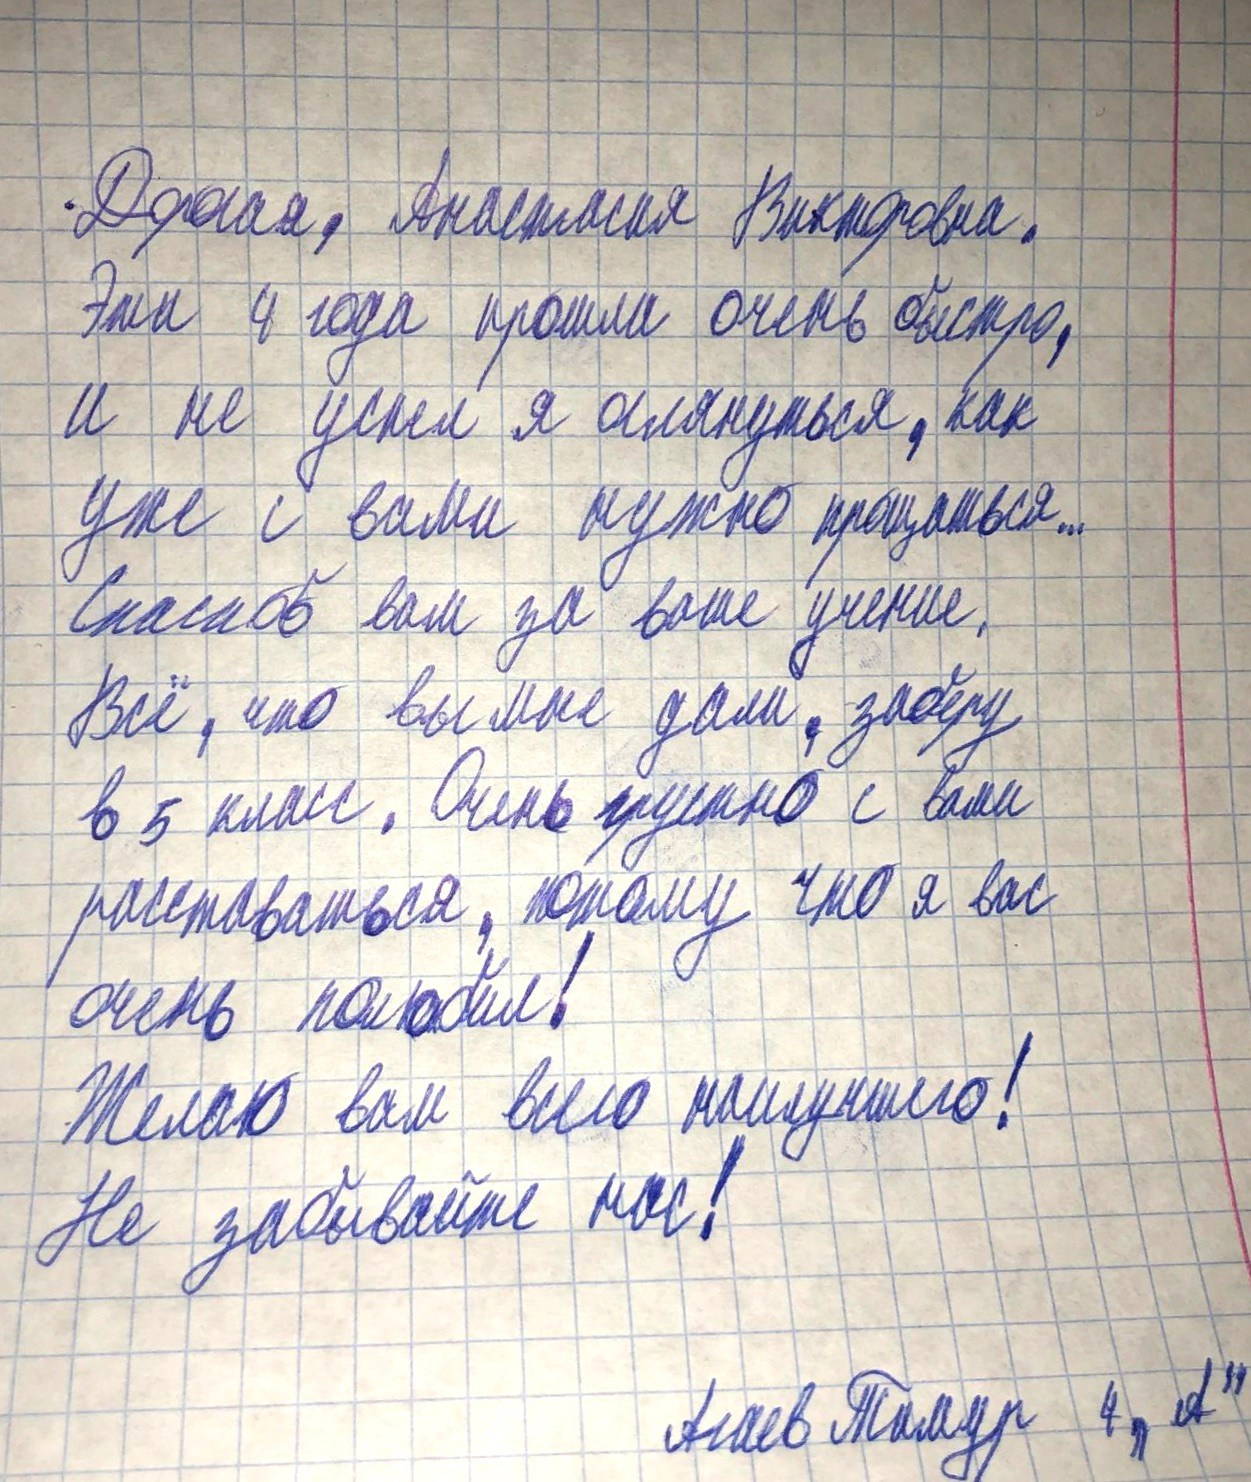 Дорогая, Анастасия Викторовна.
Эти 4 года прошли очень быстро,
и не успел я оглянуться, как
уже с вами нужно прощаться...
Спасибо вам за ваше учение.
Всё, что вы мне дали, заберу
в 5 класс. Очень грустно с вами
расставаться, потому что я вас
очень полюбил!
Желаю вам всего наилучшего!
Не забывайте нас!
Агаев Тимур 4 „А"